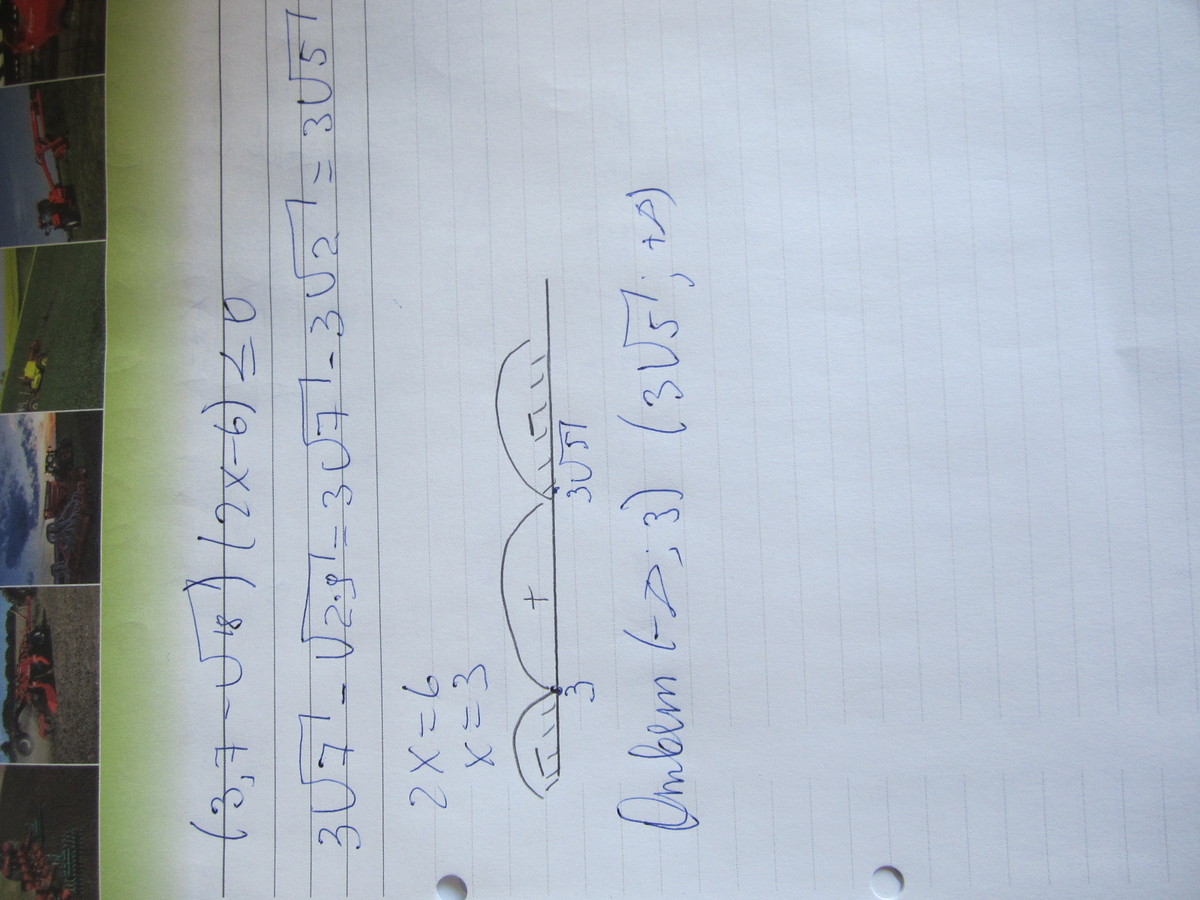 (3,7-√18)(2x-6) ≤ 0
3√7 - √2·9 = 3√7 - 3√2 = 3√5
2x=6
x=3
- + -
3 3√5
Ответ (-∞; 3) (3√5; +∞)